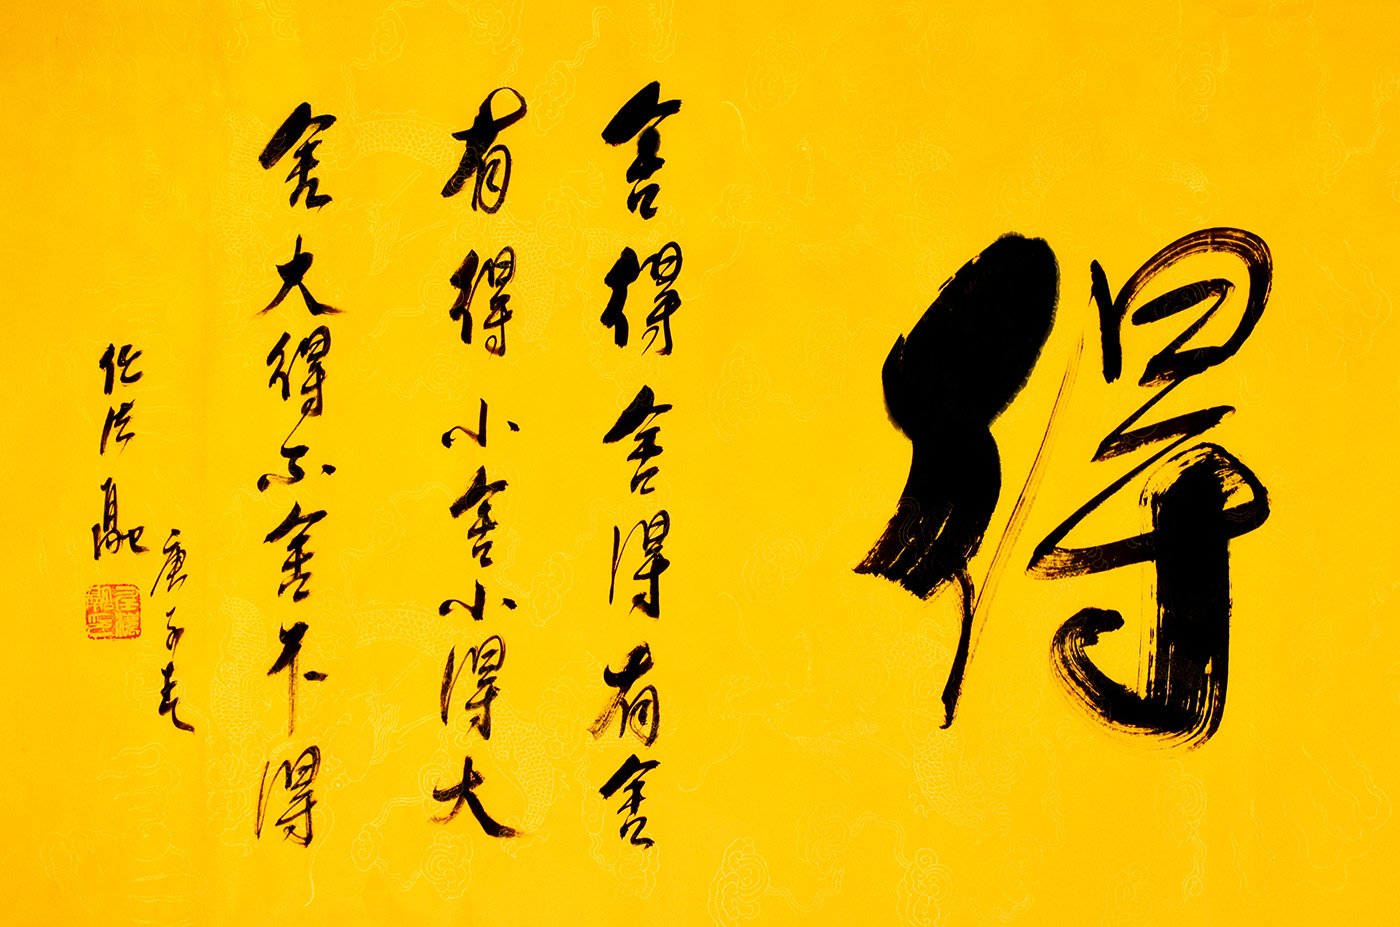 得
舍得舍得有舍
有得小舍小得大
舍大得不舍不得
庚子春
任法融